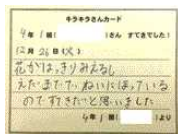 キラキラさんカード
4年1組( )さん すてきでした!
12月26日(火)
花がはっきりみえるし
えだまでていねいにはっている
のですてきだと思いました
4年1組( )より